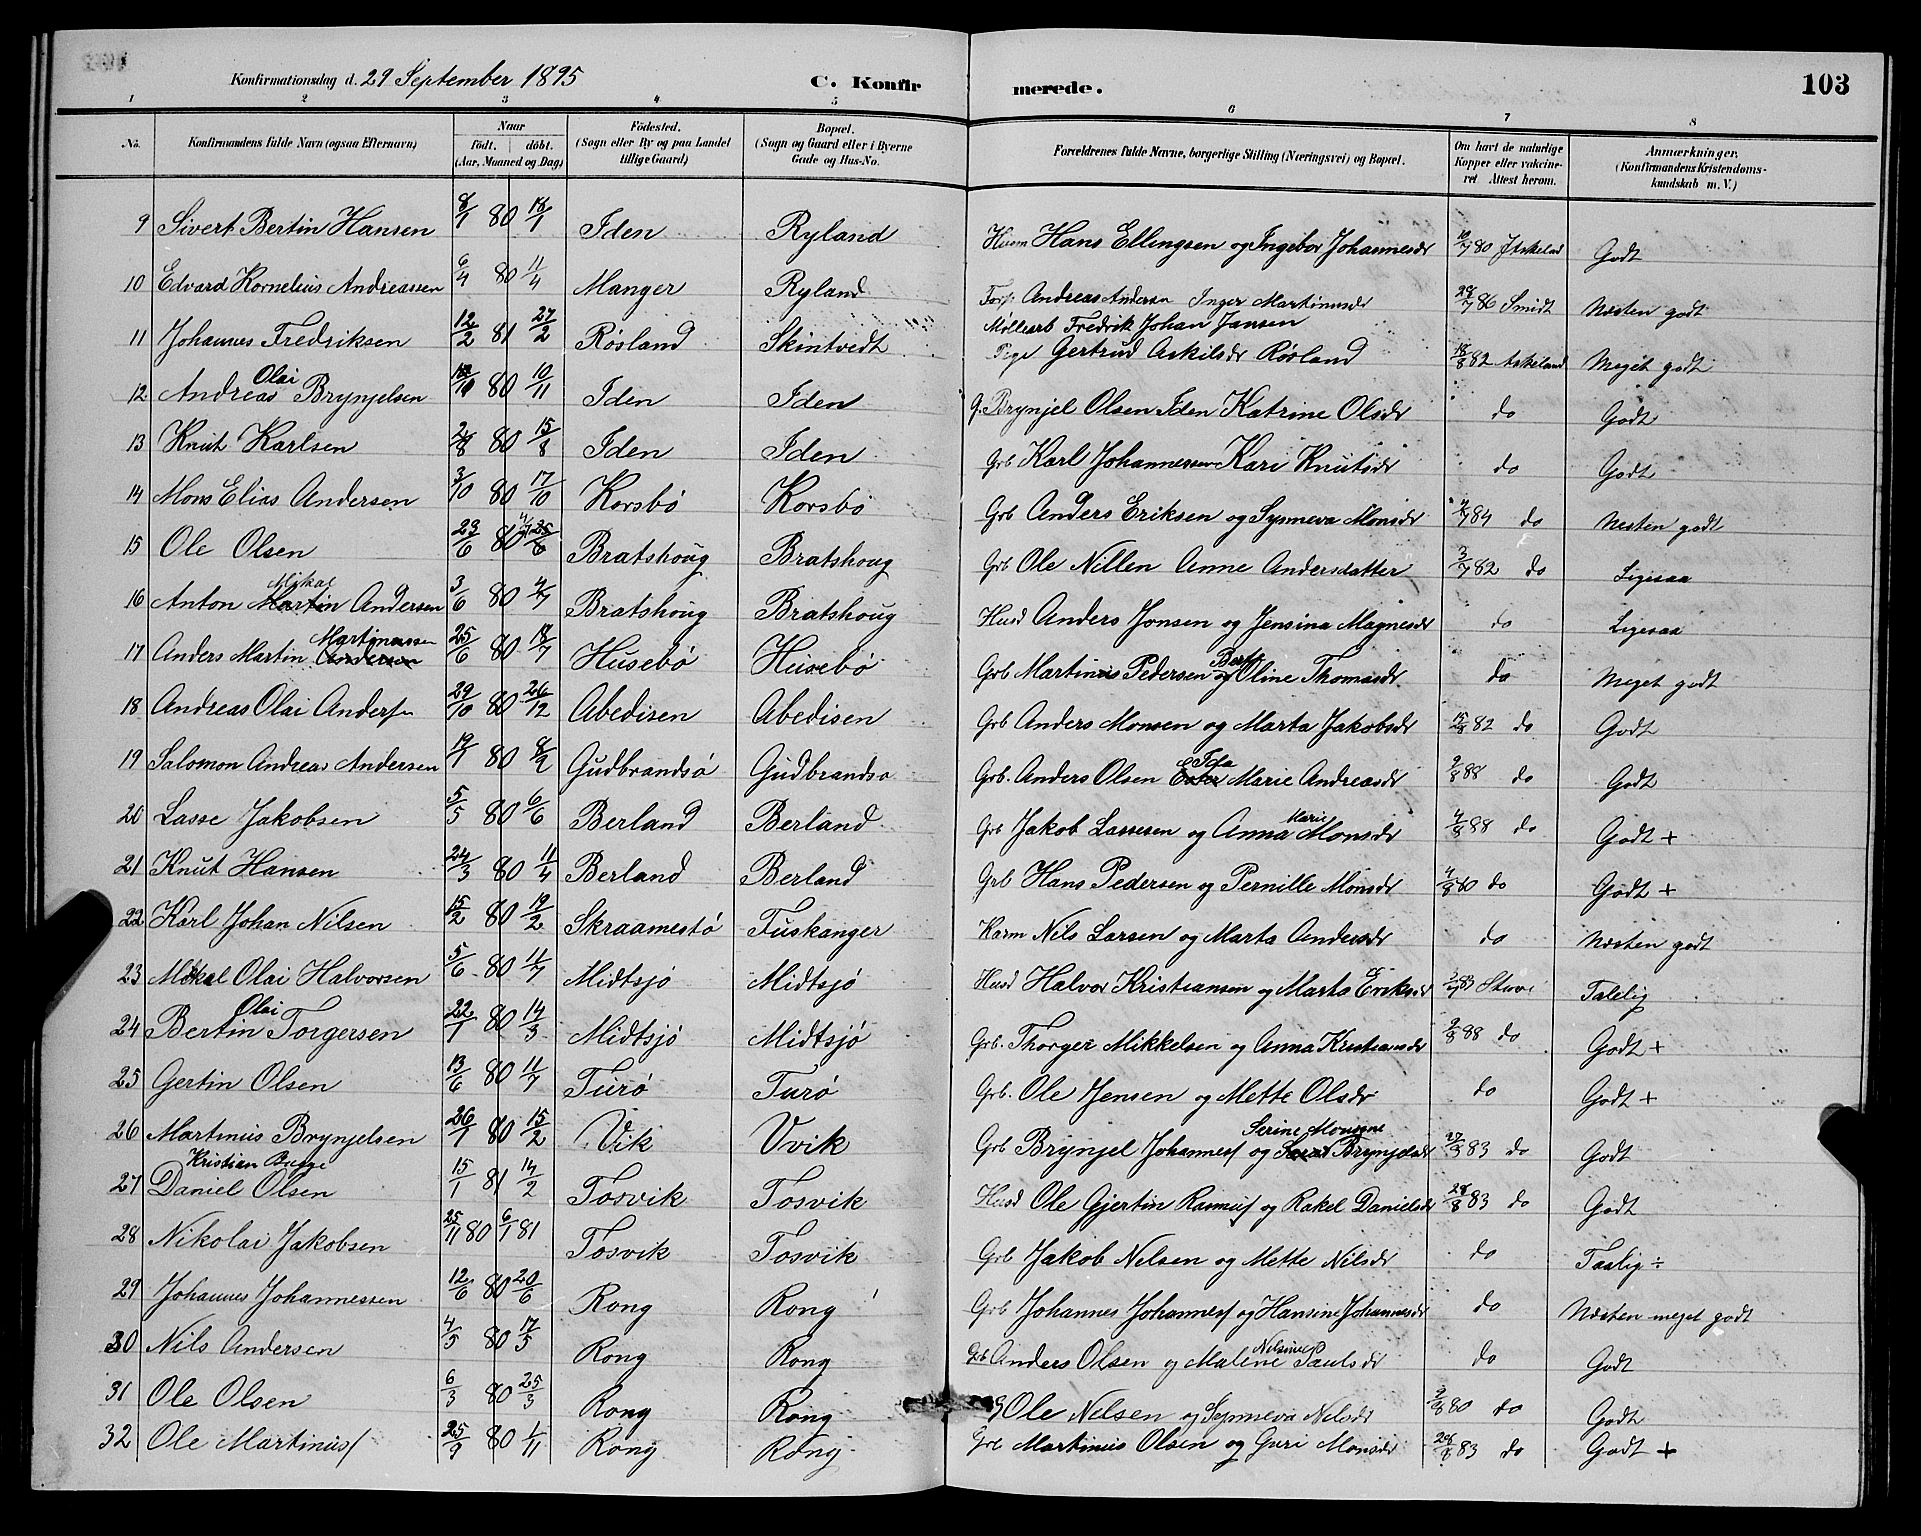 Konfirmationsdag d. 29 September 1895 C. Konfirmerede. 103
1 2 3 4 5 6 7 8
No. Konfirmandens fulde Navn (ogsaa Efternavn) Naar født. døbt. (Aar, Maaned og Dag) Födested. (Sogn eller By og paa Landet tillige Gaard) Bopæl. (Sogn og Gaard eller i Byerne Gade og Hus-No. Forældrenes fulde Navne, borgerlige Stilling (Næringsvei) og Bopæl. Om havt de naturlige Kopper eller vakcineret Attest herom. Anmærkninger. (Konfirmandens Kristendomskundskab m. V.)
9 Sivert Bertin Hansen 8/1 80 18/1 Iden Ryland Huum Hans Ellingsen og Ingebor Johannesdr 10/7 80 Godt
10 Edvard Kornelius Andreassen 6/4 80 11/4 Manger Ryland Andreas Andersn Inger Martinusdr 28/7 86 Smidt Næsten godt
11 Johannes Fredriksen 12/2 81 27/2 Røsland Skintvedt Møllearb Fredrik Johan Jansen
Pige Gertrud Askilsdr Røsland 18/8 82 Askeland Meget godt
12 Andreas Olai Brynjelsen 80 10/11 Iden Iden g. Brynjel Olsen Iden Katrine Olsdr do Godt
13 Knut Karlsen 80 15/8 Iden Iden Grb Karl Johannessen Kari Knutsdr do Godt
14 Mons Elias Andersen 3/10 80 17/10 Korsbø Korsbø Grb Anders Eriksen og Synneva Monsdr 84 do Næsten godt
15 Ole Olsen 23/6 80 4/7 Bratshoug Bratshoug Grb Ole Nillen Anne Andersdatter 3/7 82 do Ligesaa
16 Anton Mikal Martin Andersen 3/6 80 4/7 Bratshoug Bratshoug Husd Anders Jonsen og Jensina Magnesdr do Ligesaa
17 Anders Martin Martinussen Andersen 25/6 80 18/7 Husebø Husebø Grb Martinus Pedersen og Berte Oline Thomasdr do Meget godt
18 Andreas Olai Andersn 29/10 80 26/12 Abedisen Abedisen Grb Anders Monsen og Marta Jakobsdr 15/8 82 do Godt
19 Salomon Andreas Andersen 19/1 80 8/2 Gudbrandsø Gudbrandsø Grb. Anders Olsen Ida Marie Andreasdr 9/8 88 do Godt
20 Lasse Jakobsen 5/5 80 6/6 Berland Berland Grb Jakob Lassesen og Anna Marie Monsdr 4/8 88 do Godt +
21 Knut Hansen 24/3 80 11/4 Berland Berland Grb Hans Pedersen og Pernille Monsdr 4/8 80 do Godt +
22 Karl Johan Nilsen 15/2 80 19/2 Skraamestø Fuskanger Nils Larsen og Marta Andersdr do Næsten godt
23 Mikal Olai Halvorsen 5/6 80 11/7 Midtsjø Midtsjø Husd Halvor Kristiansen og Marta Eriksdr Taalelig
24 Bertin Olai Torgersen 22/1 80 14/3 Midtsjø Midtsjø Grb. Thorger Mikkelsen og Anna Kristiansdr 9/8 88 do Godt +
25 Gertin Olsen 13/6 80 11/7 Turø Turø Grb. Ole Jensen og Mette Olsdr do Godt +
26 Martinus Brynjelsen 26/1 80 15/2 Vik Vvik Grb Brynjel Johannesf og Serine Monsine Brynjelsdr 27/8 83 do Godt
27 Daniel Kristian Bugge Olsen 15/1 81 14/2 Tosvik Tosvik Husd Ole Gjertin Rasmusf og Rakel Danielsdr 28/8 83 do Godt
28 Nikolai Jakobsen 25/11 80 6/1 81 Tosvik Tosvik Grb Jakob Nelsen og Mette Nilsdr do Taalig ÷
29 Johannes Johannessen 12/6 80 20/6 Rong Rong Grb Johannes Johannesf og Hansine Johannesdr do Næsten meget godt
30 Nils Andersen 4/5 80 17/5 Rong Rong Grb Anders Olsen og Malene Nelsine Paulsdr do Godt
31 Ole Olsen 6/3 80 25/3 Rong Rong G Ole Nelsen og Synneva Nilsdr 9/8 80 do Godt
32 Ole Martinusf 25/9 80 1/11 Rong Rong Grb Martinus Olsen og Guri Monsdr 28/8 83 do Godt +